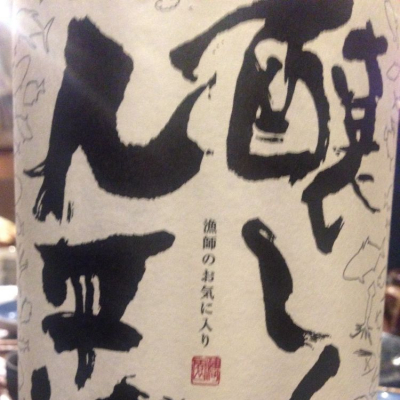 醸し人
漁師のお気に入り
九平